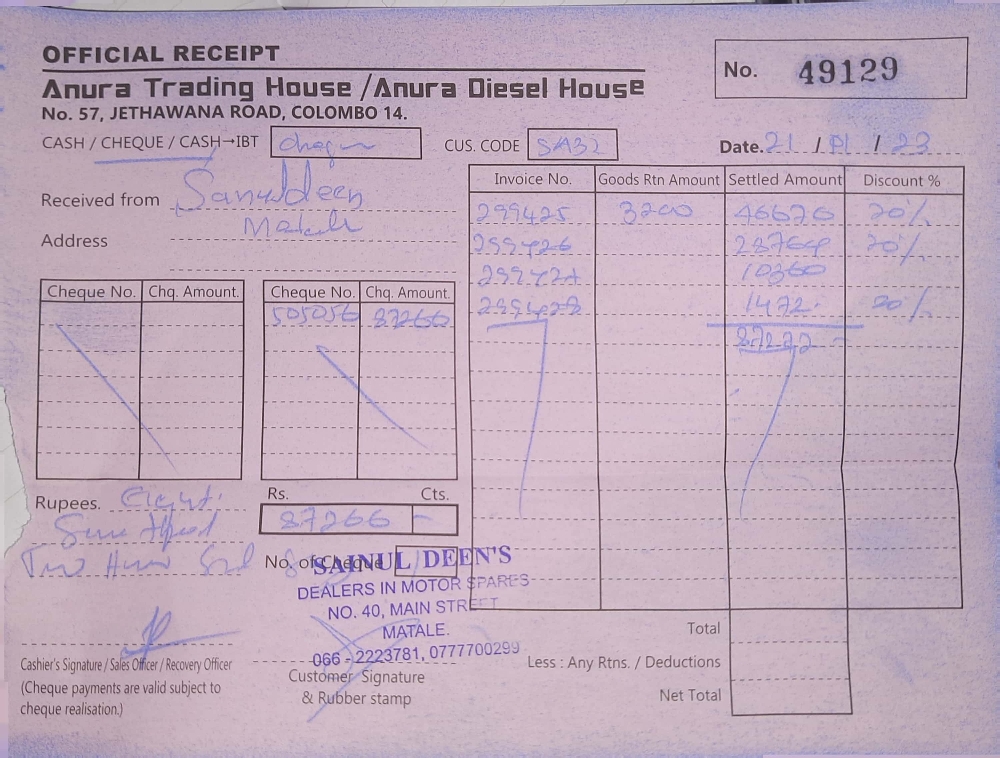 OFFICIAL RECEIPT
Anura Trading House / Anura Diesel House
No. 57, JETHAWANA ROAD, COLOMBO 14.
No. 49129
CASH / CHEQUE / CASH→IBT
CUS. CODE SA32
Date. 21 / 01 / 23
Received from Sanuldeen
Address
Invoice No. Goods Rtn Amount Settled Amount Discount %
299425 3200 46670 20%
299426 28764 20%
10360
299428 1472 20%
Cheque No. Chq. Amount. Cheque No. Chq. Amount.
505056 87266
Rupees. Eight
Two
Rs. Cts.
87266 -
No. of Cheque
SAINUL DEEN'S
DEALERS IN MOTOR SPARES
NO. 40, MAIN STREET
MATALE.
066 - 2223781, 0777700299
Cashier's Signature / Sales Officer / Recovery Officer
(Cheque payments are valid subject to
cheque realisation.)
Customer Signature
& Rubber stamp
Total
Less : Any Rtns. / Deductions
Net Total